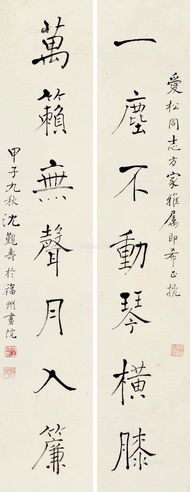 愛松同志方家雅屬即希正挽
一塵不動琴橫膝
萬籟無聲月入簾
甲子九秋沈覲壽於福州畫院